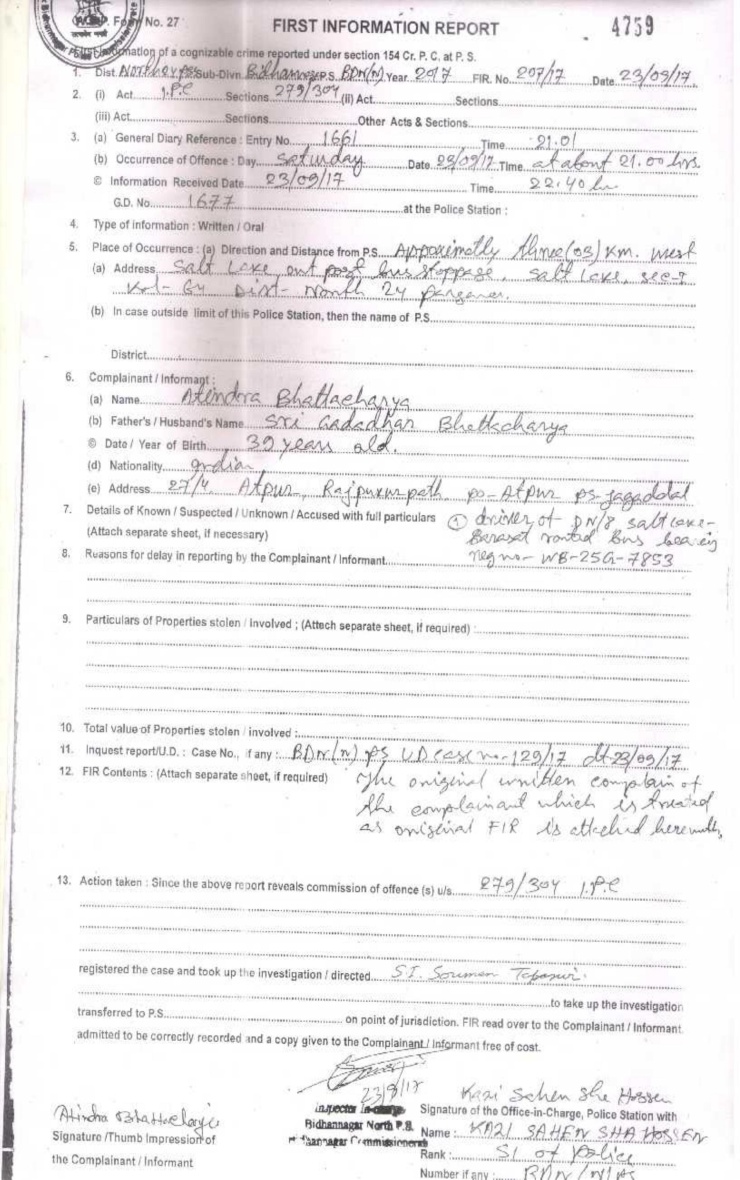 W.B.P. Form No. 27
FIRST INFORMATION REPORT
4759
First Information of a cognizable crime reported under section 154 Cr. P. C. at P. S.
1. Dist. North 24 pgs Sub-Divn. Bidhannagar P.S. BDN(N) Year 2017 FIR. No. 207/17 Date 23/09/17
2. (i) Act I.P.C Sections 279/304 (ii) Act Sections
(iii) Act Sections Other Acts & Sections
3. (a) General Diary Reference : Entry No. 1661 Time 21.01
(b) Occurrence of Offence : Day Saturday Date 23/09/17 Time at about 21.00 hrs.
© Information Received Date 23/09/17 Time 22.40 hr
G.D. No. 1677 at the Police Station :
4. Type of information : Written / Oral
5. Place of Occurrence : (a) Direction and Distance from P.S. Approximatly three (03) Km. west
(a) Address Salt Lake, out post bus stoppage, Salt Lake, sec-I
Kol- 64 Dist- North 24 parganas.
(b) In case outside limit of this Police Station, then the name of P.S.
District
6. Complainant / Informant :
(a) Name Atindra Bhattacharya
(b) Father's / Husband's Name Sri Gadadhar Bhattacharya
© Date / Year of Birth 39 years old.
(d) Nationality Indian
(e) Address 27/4. Atpur, Rajpukurpath po- Atpur ps- Jagaddal
7. Details of Known / Suspected / Unknown / Accused with full particulars ① driver of DN/8 Salt Lake-
(Attach separate sheet, if necessary) Barasat routed Bus bearing
8. Reasons for delay in reporting by the Complainant / Informant reg no- WB-25G-7853
9. Particulars of Properties stolen / Involved ; (Attech separate sheet, if required) :
10. Total value of Properties stolen / involved :
11. Inquest report/U.D. : Case No., if any : BDN(N) PS UD case no-129/17 dt-23/09/17
12. FIR Contents : (Attach separate sheet, if required) The original written complain of
the complainant which is treated
as original FIR is attached herewith,
13. Action taken : Since the above report reveals commission of offence (s) u/s. 279/304 I.P.C
registered the case and took up the investigation / directed S.I. Soumen
to take up the investigation
transferred to P.S. on point of jurisdiction. FIR read over to the Complainant / Informant,
admitted to be correctly recorded and a copy given to the Complainant / Informant free of cost.
23/9/17
Inspector In-charge
Bidhannagar North P.S.
Bidhannagar Commissionerate
Atindra Bhattacharya
Signature /Thumb Impression of
the Complainant / Informant
Kazi Sahen Sha Hossen
Signature of the Office-in-Charge, Police Station with
Name : KAZI SAHEN SHA HOSSEN
Rank : SI of Police
Number if any : BDN (N) PS